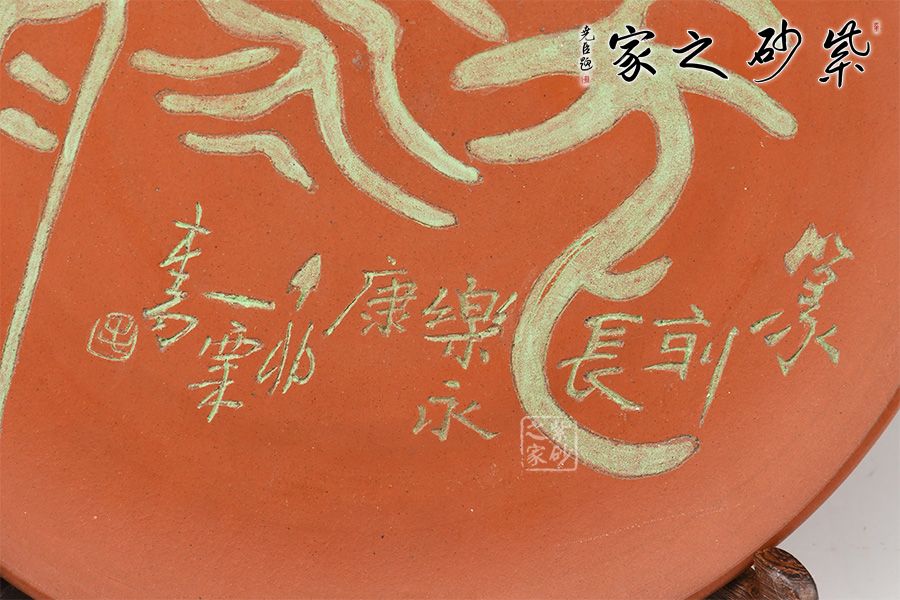 紫砂之家
尧臣题
篆
刻
長
樂永
康
一粟
書
紫砂之家